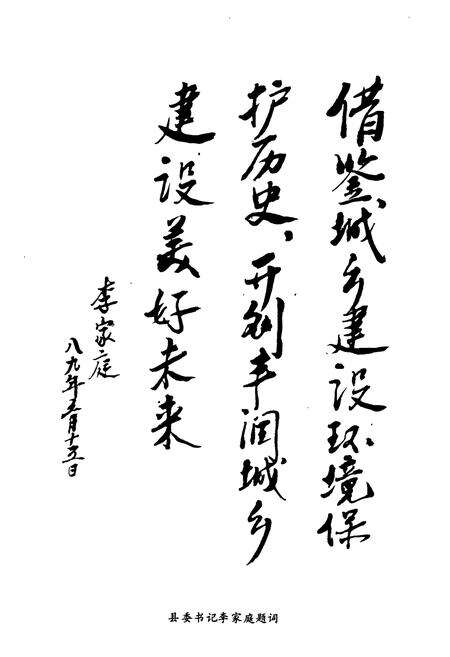 借鉴城乡建设环境保
护历史，开创丰润城乡
建设美好未来
李家庭
八九年五月十五日
县委书记李家庭题词